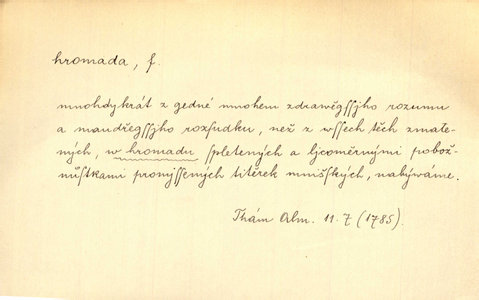 hromada, f.
mnohdykrát z gedné mnohem zdrawěgſſjho rozumu
a maudřegſſjho rozſudku, než z wſſech těch zmate-
ných, w hromadu ſpletených a ljcoměrnými pobož-
nůſtkami promyſſených titěrek mniſſkých, nabýwáme.
Thám Alm. 11.7 (1785).